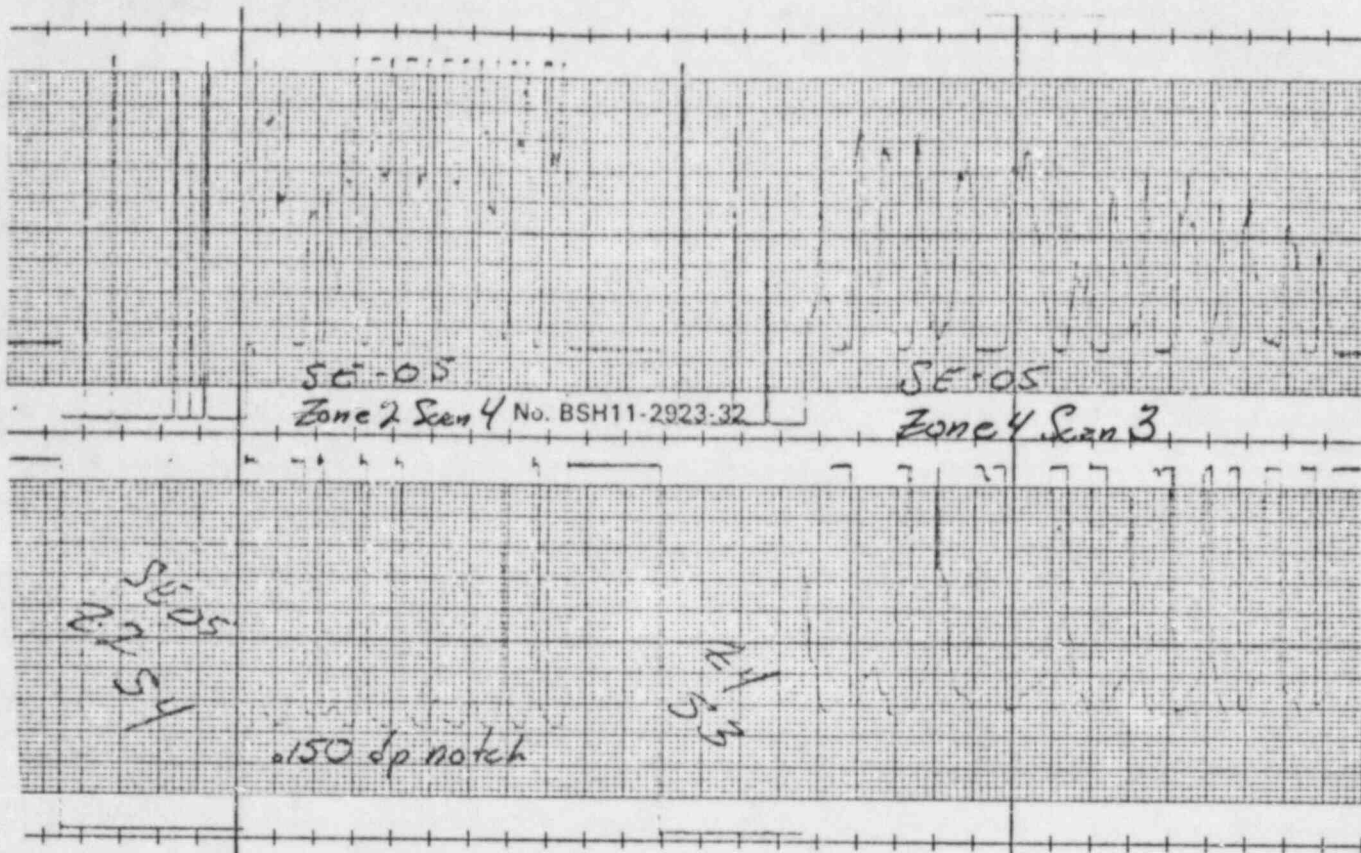 SE-05
Zone 2 Scan 4 No. BSH11-2923-32
SE-05
Zone 4 Scan 3
SE05
Z.2
S4
.150 dp notch
Z.4
S.3